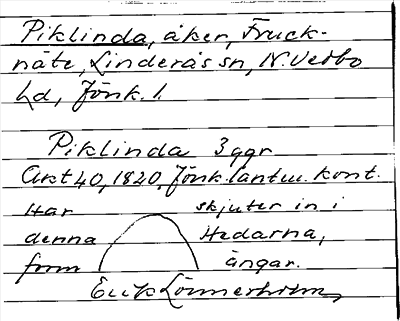 Piklinda, åker, Fruck-
näte, Linderås sn, N. Vedbo
hd, Jönk. l.
Piklinda 3 ggr
Akt 40, 1820, Jönk. lantm. kont.
Har skjuter in i
denna Hedarna,
form ängar.
Erik Lönnerholm